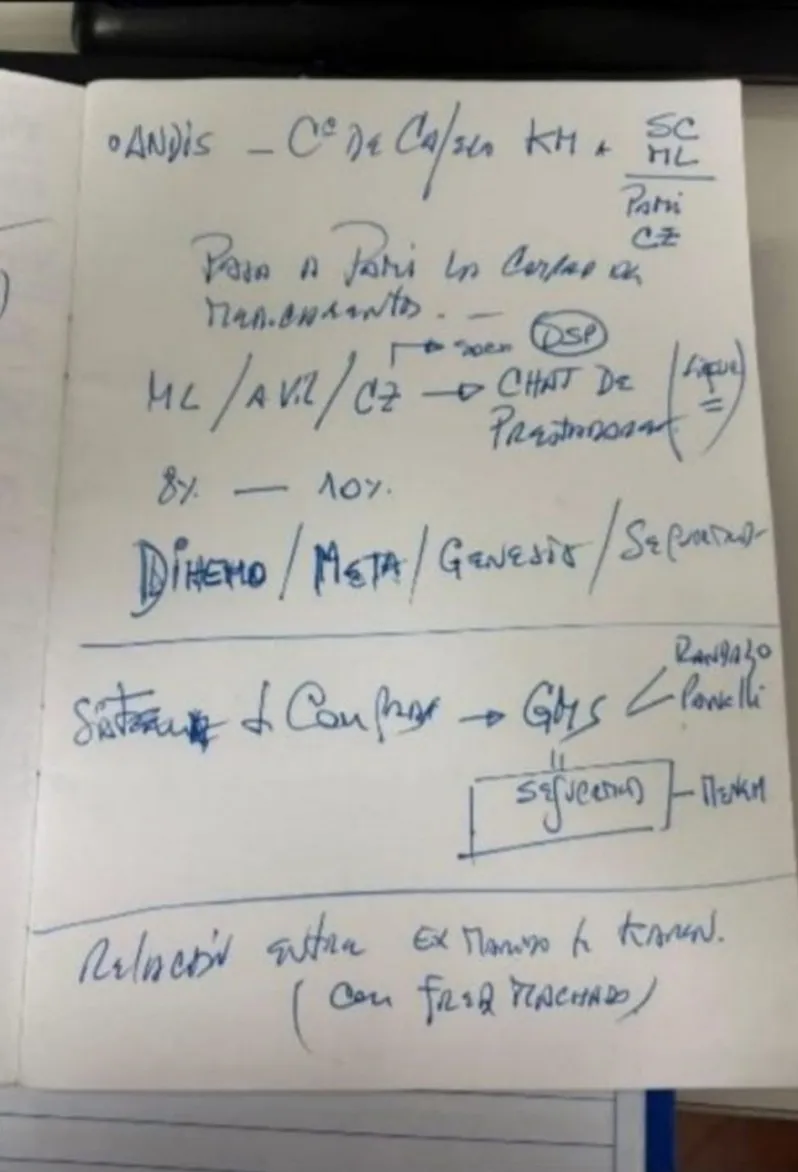 ANDIS - Cº DE Ca/ KM + SC
ML
PAMI
CZ
PASA A PAMI LA COMPRA DE
MEDICAMENTOS. -
DSP
ML / AVIL / CZ → CHAT DE
PRESTADORES
8% — 10%
DIHEMO / META / GENESIS /
SISTEMA d COMPRAS → GMS
RANDAZO
PANELLI
SEGURIDAD
RELACIÓN ENTRE EX MARIDO d KAREN.
(Con FRED MACHADO)